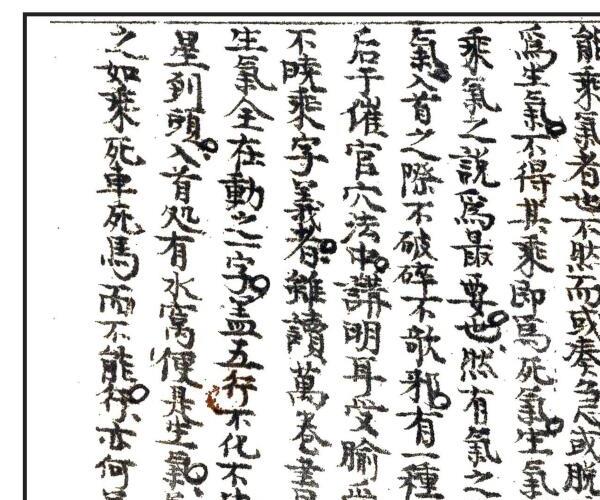 能乘氣者也不然而或凑急或脫
爲生氣不得其乘即爲死氣生氣
乘氣之說爲最要也然有氣之
氣入首之際不破碎不欹邪有一種
后于催官穴法中講明耳受腧
不曉乘字義者雖讀萬卷
生氣全在動之一字蓋五行不化不
星到頭入首処有水窩便是生氣
之如乘死車死馬而不能行亦何